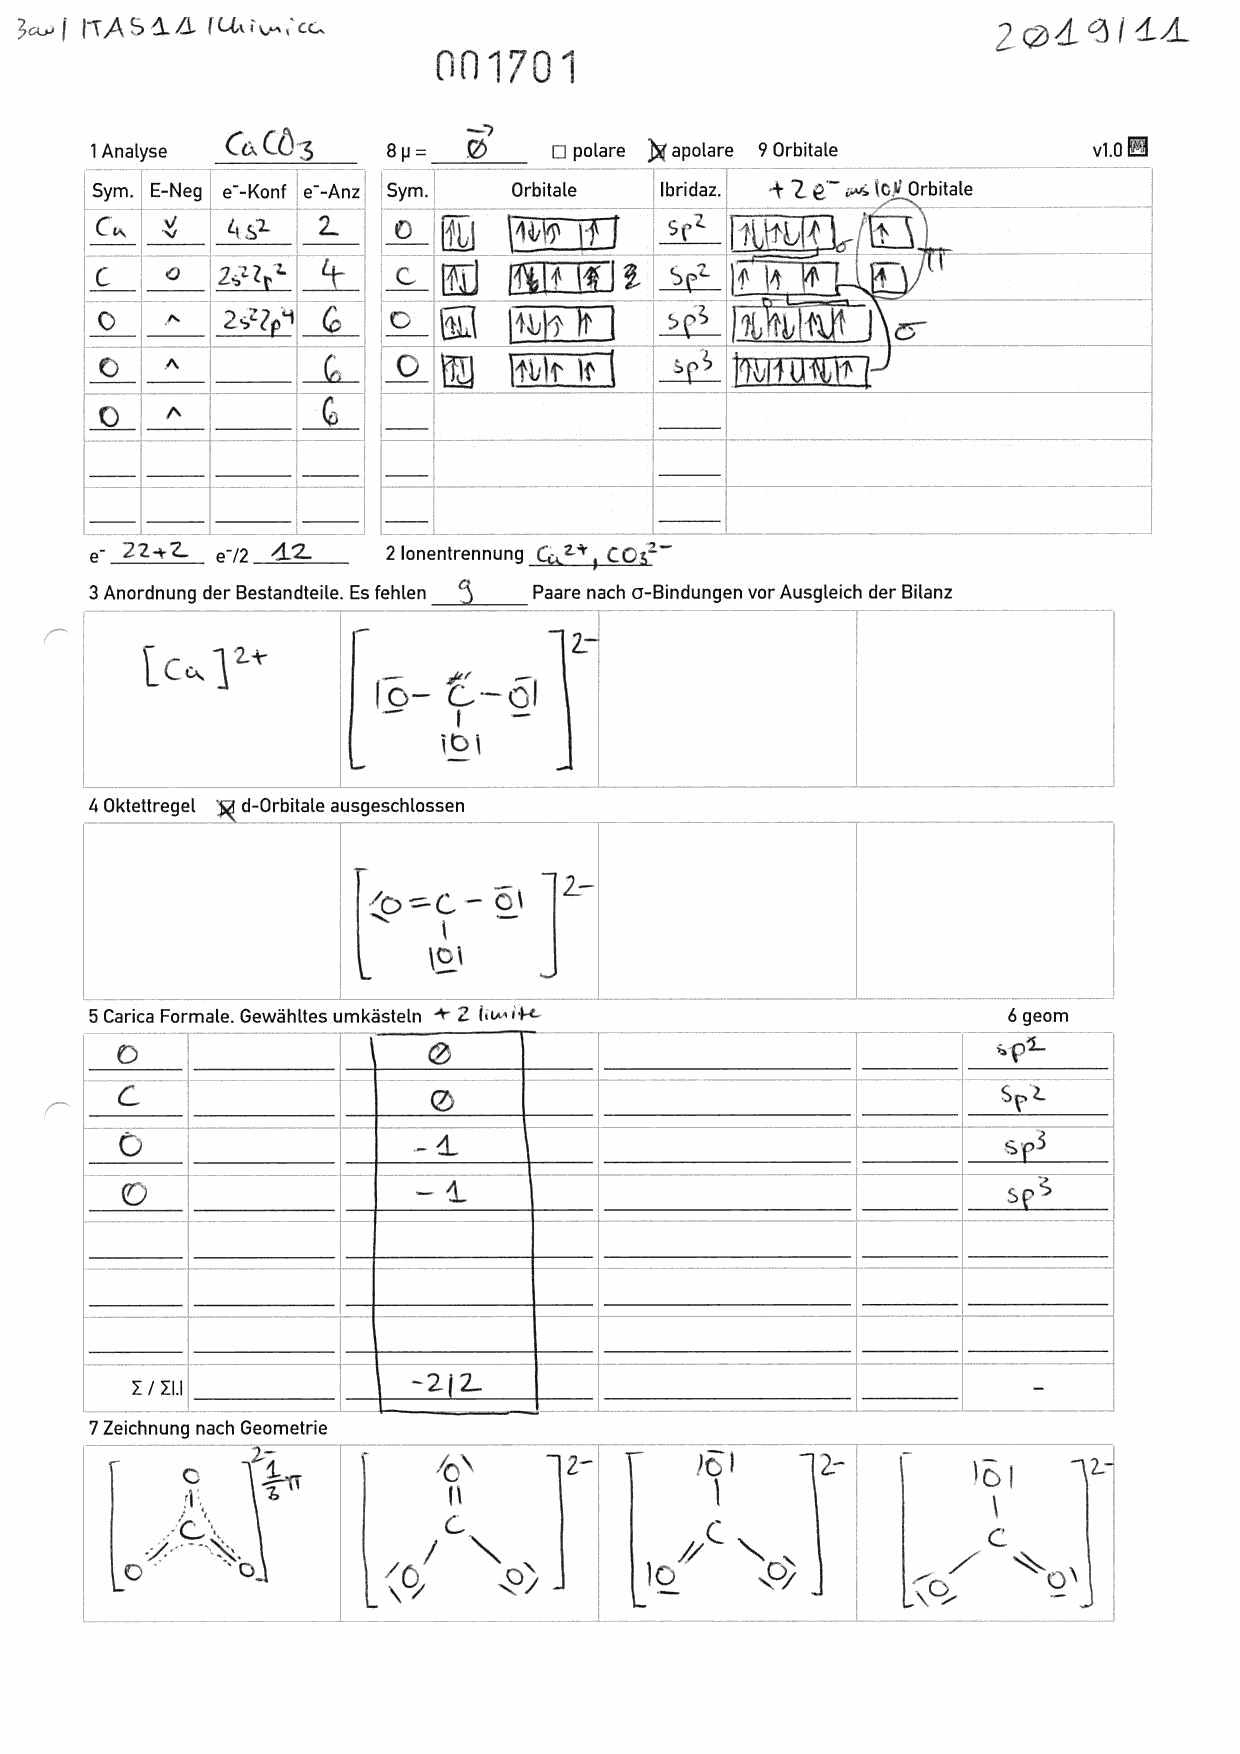 3aw | ITAS1A | Chimica
2Ø19/11
001701
1 Analyse CaCO3 8 µ = Ø □ polare ☒ apolare 9 Orbitale v1.0 M
Sym. E-Neg e⁻-Konf e⁻-Anz Sym. Orbitale Ibridaz. + 2 e⁻ aus ION Orbitale
Ca 4s² 2 O ↑↓ ↑↓ ↑ ↑ sp² ↑↓ ↑↓ ↑ σ ↑ π
C 0 2s²2p² 4 C ↑↓ sp² ↑ ↑ ↑ ↑
O ^ 2s²2p⁴ 6 O ↑↓ ↑↓ ↑ ↑ sp³ ↑↓ ↑↓ ↑↓ ↑ σ
O ^ 6 O ↑↓ ↑↓ ↑ ↑ sp³ ↑↓ ↑↓ ↑↓ ↑
O ^ 6
e⁻ 22+2 e⁻/2 12 2 Ionentrennung Ca²⁺, CO3²⁻
3 Anordnung der Bestandteile. Es fehlen 9 Paare nach σ-Bindungen vor Ausgleich der Bilanz
[Ca]²⁺ [|O – C – O|]²⁻
|O|
4 Oktettregel ☒ d-Orbitale ausgeschlossen
[O = C – O|]²⁻
|O|
5 Carica Formale. Gewähltes umkästeln + 2 limite 6 geom
O Ø sp²
C Ø sp²
O -1 sp³
O -1 sp³
Σ / Σ|.| -2|2 –
7 Zeichnung nach Geometrie
2- 1/3 π 2- 2- 2-
O |O| |O| |O|
C C C C
O O O O O O O O